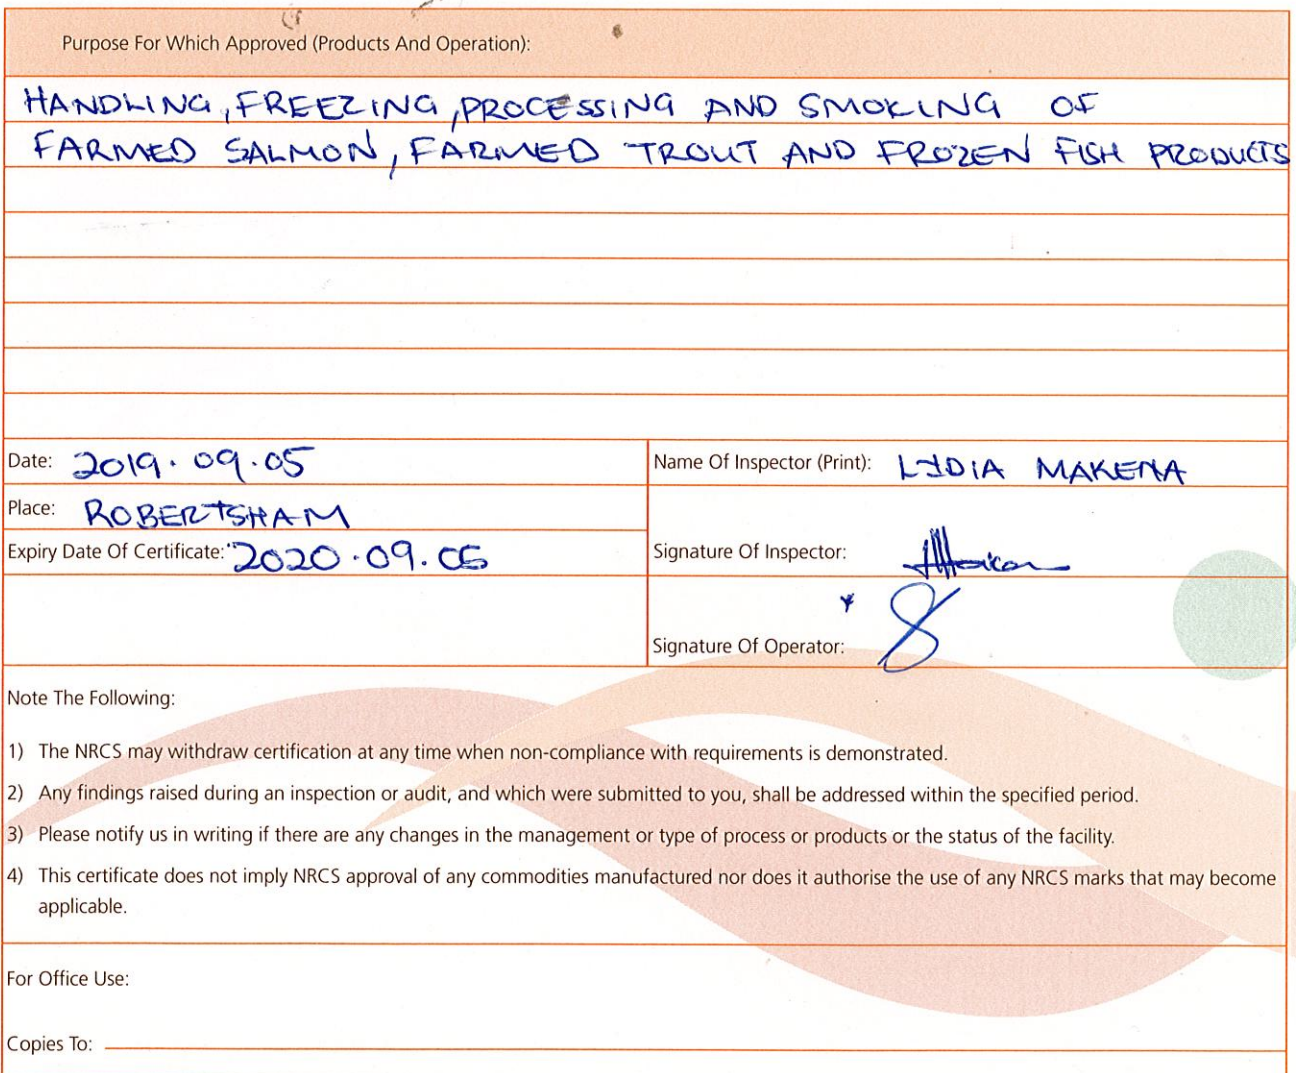 Purpose For Which Approved (Products And Operation):
HANDLING, FREEZING, PROCESSING AND SMOKING OF
FARMED SALMON, FARMED TROUT AND FROZEN FISH PRODUCTS
Date: 2019.09.05
Name Of Inspector (Print): LYDIA MAKENA
Place: ROBERTSHAM
Expiry Date Of Certificate: 2020.09.05
Signature Of Inspector:
Signature Of Operator:
Note The Following:
1) The NRCS may withdraw certification at any time when non-compliance with requirements is demonstrated.
2) Any findings raised during an inspection or audit, and which were submitted to you, shall be addressed within the specified period.
3) Please notify us in writing if there are any changes in the management or type of process or products or the status of the facility.
4) This certificate does not imply NRCS approval of any commodities manufactured nor does it authorise the use of any NRCS marks that may become
applicable.
For Office Use:
Copies To: